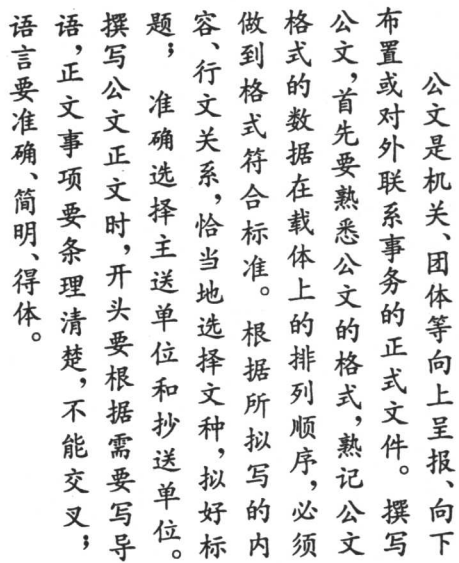 公文是机关、团体等向上呈报、向下
布置或对外联系事务的正式文件。撰写
公文，首先要熟悉公文的格式，熟记公文
格式的数据在载体上的排列顺序，必须
做到格式符合标准。根据所拟写的内
容、行文关系，恰当地选择文种，拟好标
题；准确选择主送单位和抄送单位。
撰写公文正文时，开头要根据需要写导
语，正文事项要条理清楚，不能交叉；
语言要准确、简明、得体。